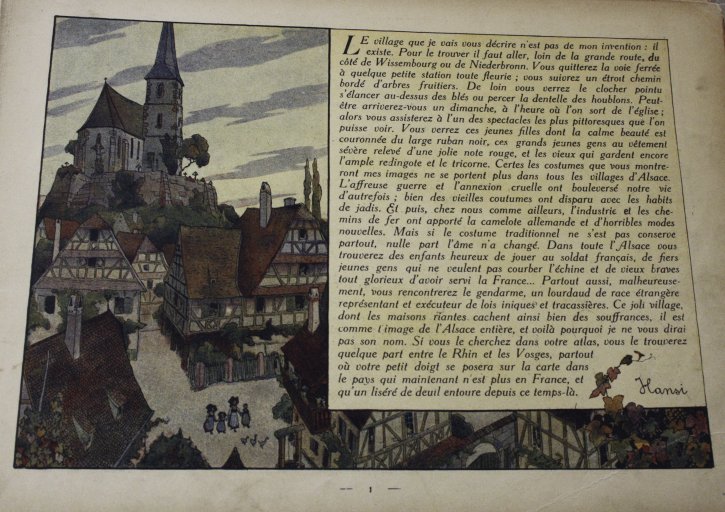 LE village que je vais vous décrire n'est pas de mon invention : il
existe. Pour le trouver il faut aller, loin de la grande route, du
côté de Wissembourg ou de Niederbronn. Vous quitterez la voie ferrée
à quelque petite station toute fleurie ; vous suivrez un étroit chemin
bordé d'arbres fruitiers. De loin vous verrez le clocher pointu
s'élancer au-dessus des blés ou percer la dentelle des houblons. Peut-
être arriverez-vous un dimanche, à l'heure où l'on sort de l'église ;
alors vous assisterez à l'un des spectacles les plus pittoresques que l'on
puisse voir. Vous verrez ces jeunes filles dont la calme beauté est
couronnée du large ruban noir, ces grands jeunes gens au vêtement
sévère relevé d'une jolie note rouge, et les vieux qui gardent encore
l'ample redingote et le tricorne. Certes les costumes que vous montre-
ront mes images ne se portent plus dans tous les villages d'Alsace.
L'affreuse guerre et l'annexion cruelle ont bouleversé notre vie
d'autrefois ; bien des vieilles coutumes ont disparu avec les habits
de jadis. Et puis, chez nous comme ailleurs, l'industrie et les che-
mins de fer ont apporté la camelote allemande et d'horribles modes
nouvelles. Mais si le costume traditionnel ne s'est pas conservé
partout, nulle part l'âme n'a changé. Dans toute l'Alsace vous
trouverez des enfants heureux de jouer au soldat français, de fiers
jeunes gens qui ne veulent pas courber l'échine et de vieux braves
tout glorieux d'avoir servi la France... Partout aussi, malheureuse-
ment, vous rencontrerez le gendarme, un lourdaud de race étrangère
représentant et exécuteur de lois iniques et tracassières. Ce joli village,
dont les maisons riantes cachent ainsi bien des souffrances, il est
comme l'image de l'Alsace entière, et voilà pourquoi je ne vous dirai
pas son nom. Si vous le cherchez dans votre atlas, vous le trouverez
quelque part entre le Rhin et les Vosges, partout
où votre petit doigt se posera sur la carte dans
le pays qui maintenant n'est plus en France, et
qu'un liséré de deuil entoure depuis ce temps-là.
Hansi
— 1 —